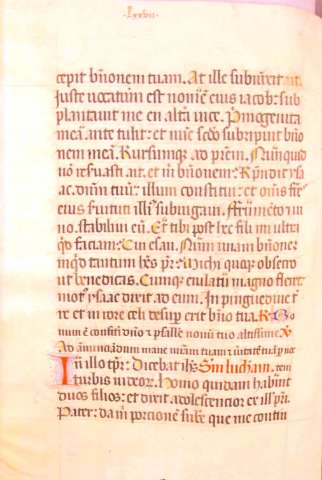 ·lxxvii·
cepit bñonem tuam. At ille subiunxit ait.
Juste vocatum est nomē eius iacob: sub
plantavit me en altā vice. Pimogenita
meā. ante tulit: et nūc scdo subripuit bñō
nem meā. Rursumque ad prem. Nunquid
nō reseruasti. ait. et m̄ bñonem: Rñdit ysa
ac. dñm tuū: illum constitui: et oms̄ fr̄s
eius seruituti illi subiugaui. frumēto et ui
no. stabiliui eū. Et tibi post hec fili mi ultra
qd faciam: Cui esau. Num unam bñonem
inqd tantum hēs pr̄: Michi quoque obsecro
ut benedicas. Cumque eiulatu magno fleret
motus ysaac dixit ad eum. In pinguedine tr̄
re et in rore celi desup erit bñō tua. Bo
num ē confiteri dño et psallere nomini tuo altissime
Ad anunciādum mane miam tuam
In illo tpr̄: Dicebat ihs̄ Sm lucham.
turbis Homo quidam habuit
duos filios: et dixit adolescencior ex illis pri.
Pater: da m̄ porcionem subē que me contin